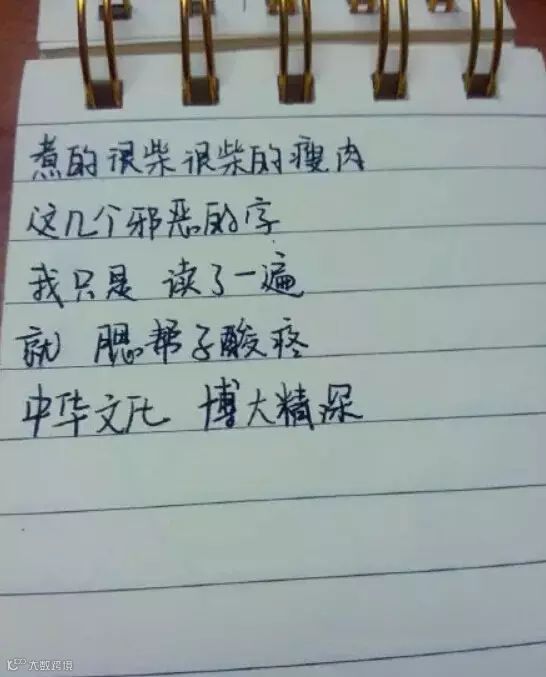 煮的很柴很柴的瘦肉
这几个邪恶的字
我只是 读了一遍
就 腮帮子酸疼
中华文化 博大精深
大数跨境